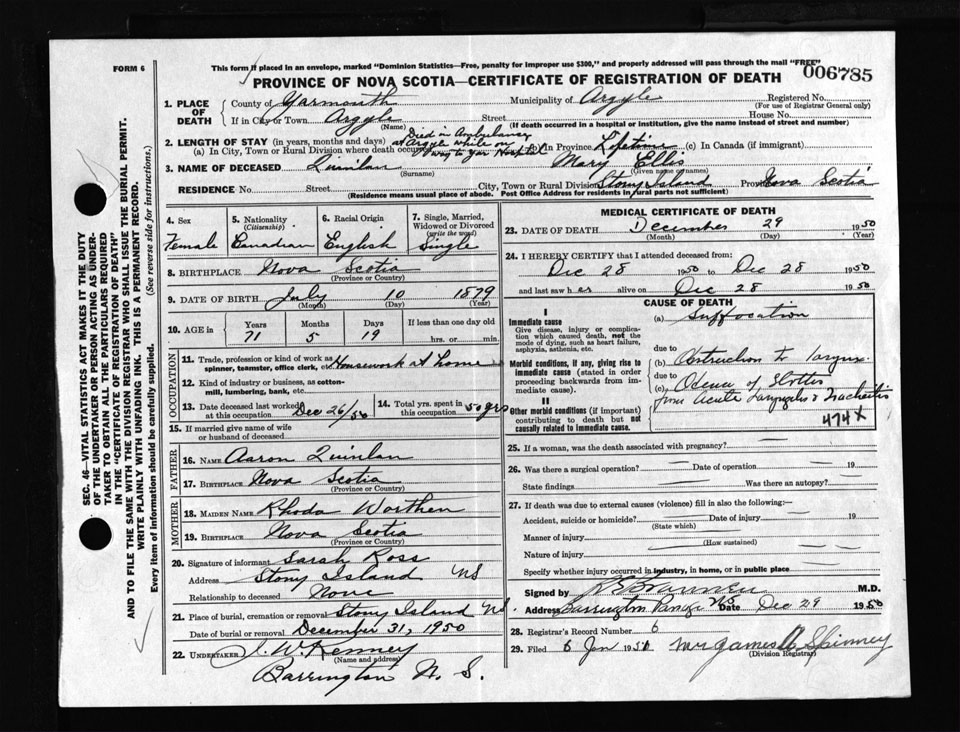 FORM 6
This form if placed in an envelope, marked "Dominion Statistics—Free, penalty for improper use $300," and properly addressed will pass through the mail "FREE"
006785
PROVINCE OF NOVA SCOTIA—CERTIFICATE OF REGISTRATION OF DEATH
SEC. 46—VITAL STATISTICS ACT MAKES IT THE DUTY
OF THE UNDERTAKER OR PERSON ACTING AS UNDER-
TAKER TO OBTAIN ALL THE PARTICULARS REQUIRED
IN THE "CERTIFICATE OF REGISTRATION OF DEATH"
AND TO FILE THE SAME WITH THE DIVISION REGISTRAR WHO SHALL ISSUE THE BURIAL PERMIT.
WRITE PLAINLY WITH UNFADING INK. THIS IS A PERMANENT RECORD.
Every item of information should be carefully supplied. (See reverse side for instructions.)
1. PLACE OF DEATH
County of Yarmouth Municipality of Argyle Registered No.
(For use of Registrar General only)
If in City or Town Argyle Street House No.
(Name) (If death occurred in a hospital or institution, give the name instead of street and number)
2. LENGTH OF STAY (in years, months and days)
Died in Ambulance
at Argyle while on
way to Yar Hospital
(a) In City, Town or Rural Division where death occurred (b) In Province Lifetime (c) In Canada (if immigrant)
3. NAME OF DECEASED Quinlan Mary Ellis
(Surname) (Given name or names)
RESIDENCE No. Street City, Town or Rural Division Stony Island Province Nova Scotia
(Residence means usual place of abode. Post Office Address for residents in rural parts not sufficient)
4. Sex Female
5. Nationality (Citizenship) Canadian
6. Racial Origin English
7. Single, Married, Widowed or Divorced (write the word) Single
8. BIRTHPLACE Nova Scotia
(Province or Country)
9. DATE OF BIRTH July 10 1879
(Month) (Day) (Year)
10. AGE in Years Months Days If less than one day old
71 5 19 hrs. or min.
OCCUPATION
11. Trade, profession or kind of work as
spinner, teamster, office clerk, etc. Housework at home
12. Kind of industry or business, as cotton-
mill, lumbering, bank, etc.
13. Date deceased last worked at this occupation Dec 26/50
14. Total yrs. spent in this occupation 50 yrs
15. If married give name of wife
or husband of deceased
FATHER
16. NAME Aaron Quinlan
17. BIRTHPLACE Nova Scotia
(Province or Country)
MOTHER
18. MAIDEN NAME Rhoda Worthen
19. BIRTHPLACE Nova Scotia
(Province or Country)
20. Signature of informant Sarah Ross
Address Stony Island NS
Relationship to deceased None
21. Place of burial, cremation or removal Stony Island NS.
Date of burial or removal December 31, 1950
22. UNDERTAKER J. W. Kenney
(Name and address)
Barrington N. S.
MEDICAL CERTIFICATE OF DEATH
23. DATE OF DEATH December 29 1950
(Month) (Day) (Year)
24. I HEREBY CERTIFY that I attended deceased from:
Dec 28 1950 to Dec 28 1950
and last saw her alive on Dec 28 1950
CAUSE OF DEATH
I
Immediate cause
Give disease, injury or complica-
tion which caused death, not the
mode of dying, such as heart failure,
asphyxia, asthenia, etc.
(a) Suffocation
due to
Morbid conditions, if any, giving rise to
immediate cause (stated in order
proceeding backwards from im-
mediate cause).
(b) Obstruction to larynx
due to
(c) Odema of Glottis
from Acute Laryngitis & Tracheitis
474X
II
Other morbid conditions (if important)
contributing to death but not
causally related to immediate cause.
25. If a woman, was the death associated with pregnancy?
26. Was there a surgical operation? Date of operation 19
State findings Was there an autopsy?
27. If death was due to external causes (violence) fill in also the following:—
Accident, suicide or homicide? Date of injury 19
(State which)
Manner of injury
(How sustained)
Nature of injury
Specify whether injury occurred in industry, in home, or in public place
Signed by M.D.
Address Barrington Passage NS Date Dec 29 1950
28. Registrar's Record Number 6
29. Filed 6 Jan 1951 Mr James A Spinney
(Division Registrar)